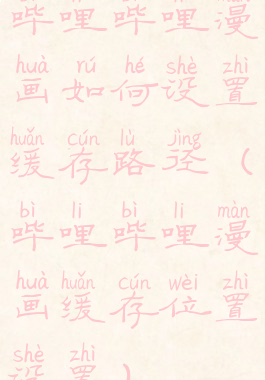 哔哩哔哩漫
huà rú hé shè zhì
画如何设置
huǎn cún lù jìng
缓存路径（
bì li bì li màn
哔哩哔哩漫
huà huǎn cún wèi zhì
画缓存位置
shè zhì
设置）